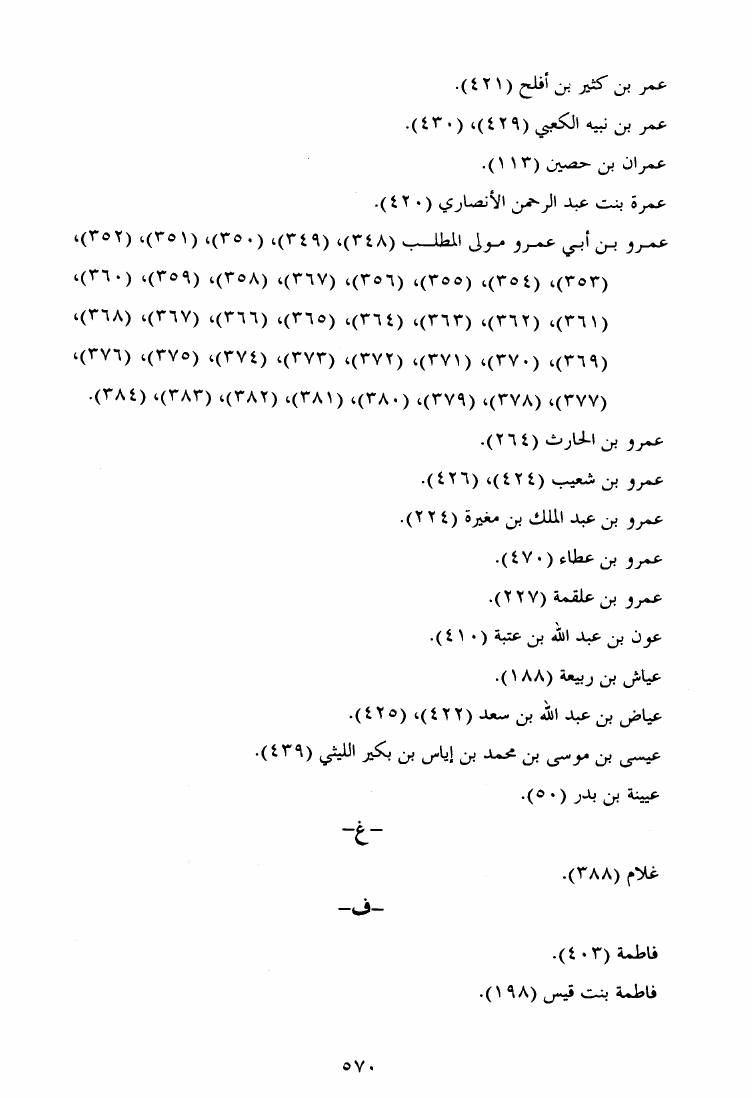 عمر بن كثير بن أفلح (٤٢١).
عمر بن نبيه الكعبي (٤٢٩)، (٤٣٠).
عمران بن حصين (١١٣).
عمرة بنت عبد الرحمن الأنصاري (٤٢٠).
عمرو بن أبي عمرو مولى المطلب (٣٤٨)، (٣٤٩)، (٣٥٠)، (٣٥١)، (٣٥٢)،
(٣٥٣)، (٣٥٤)، (٣٥٥)، (٣٥٦)، (٣٦٧)، (٣٥٨)، (٣٥٩)، (٣٦٠)،
(٣٦١)، (٣٦٢)، (٣٦٣)، (٣٦٤)، (٣٦٥)، (٣٦٦)، (٣٦٧)، (٣٦٨)،
(٣٦٩)، (٣٧٠)، (٣٧١)، (٣٧٢)، (٣٧٣)، (٣٧٤)، (٣٧٥)، (٣٧٦)،
(٣٧٧)، (٣٧٨)، (٣٧٩)، (٣٨٠)، (٣٨١)، (٣٨٢)، (٣٨٣)، (٣٨٤).
عمرو بن الحارث (٢٦٤).
عمرو بن شعيب (٤٢٤)، (٤٢٦).
عمرو بن عبد الملك بن مغيرة (٢٢٤).
عمرو بن عطاء (٤٧٠).
عمرو بن علقمة (٢٢٧).
عون بن عبد الله بن عتبة (٤١٠).
عياش بن ربيعة (١٨٨).
عياض بن عبد الله بن سعد (٤٢٢)، (٤٢٥).
عيسى بن موسى بن محمد بن إياس بن بكير الليثي (٤٣٩).
عيينة بن بدر (٥٠).
-غ-
غلام (٣٨٨).
-ف-
فاطمة (٤٠٣).
فاطمة بنت قيس (١٩٨).
٥٧٠